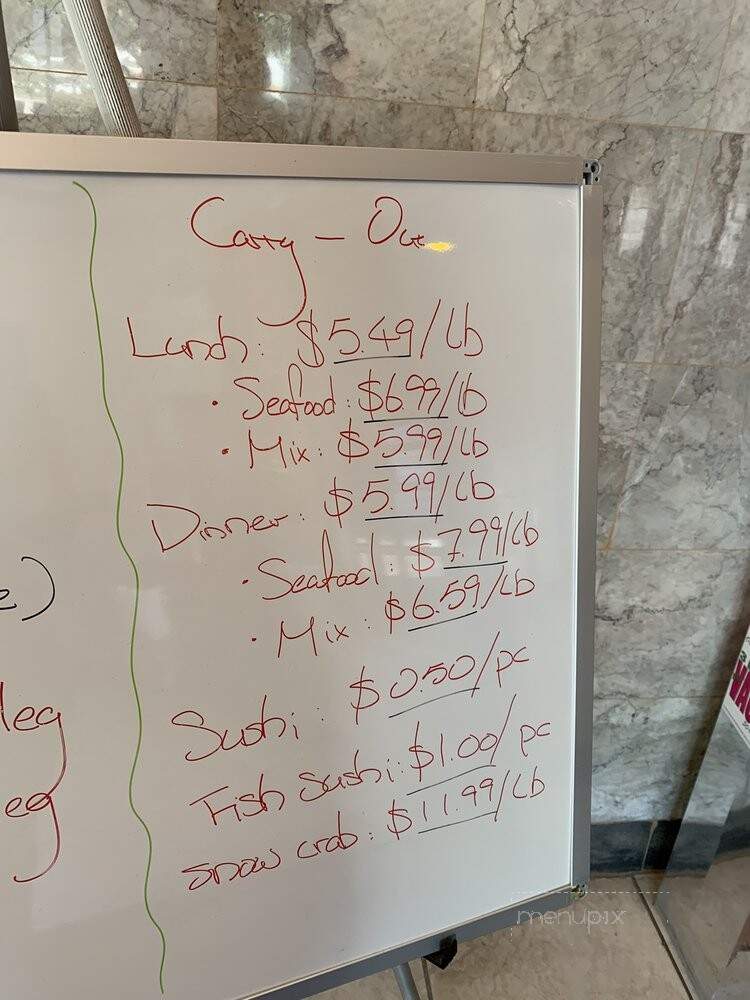 Carry - Out
Lunch: $5.49/lb
• Seafood: $6.99/lb
• Mix: $5.99/lb
Dinner: $5.99/lb
• Seafood: $7.99/lb
• Mix: $6.59/lb
Sushi: $0.50/pc
Fish sushi: $1.00/pc
Snow crab: $11.99/lb
e)
leg
eg
menupix